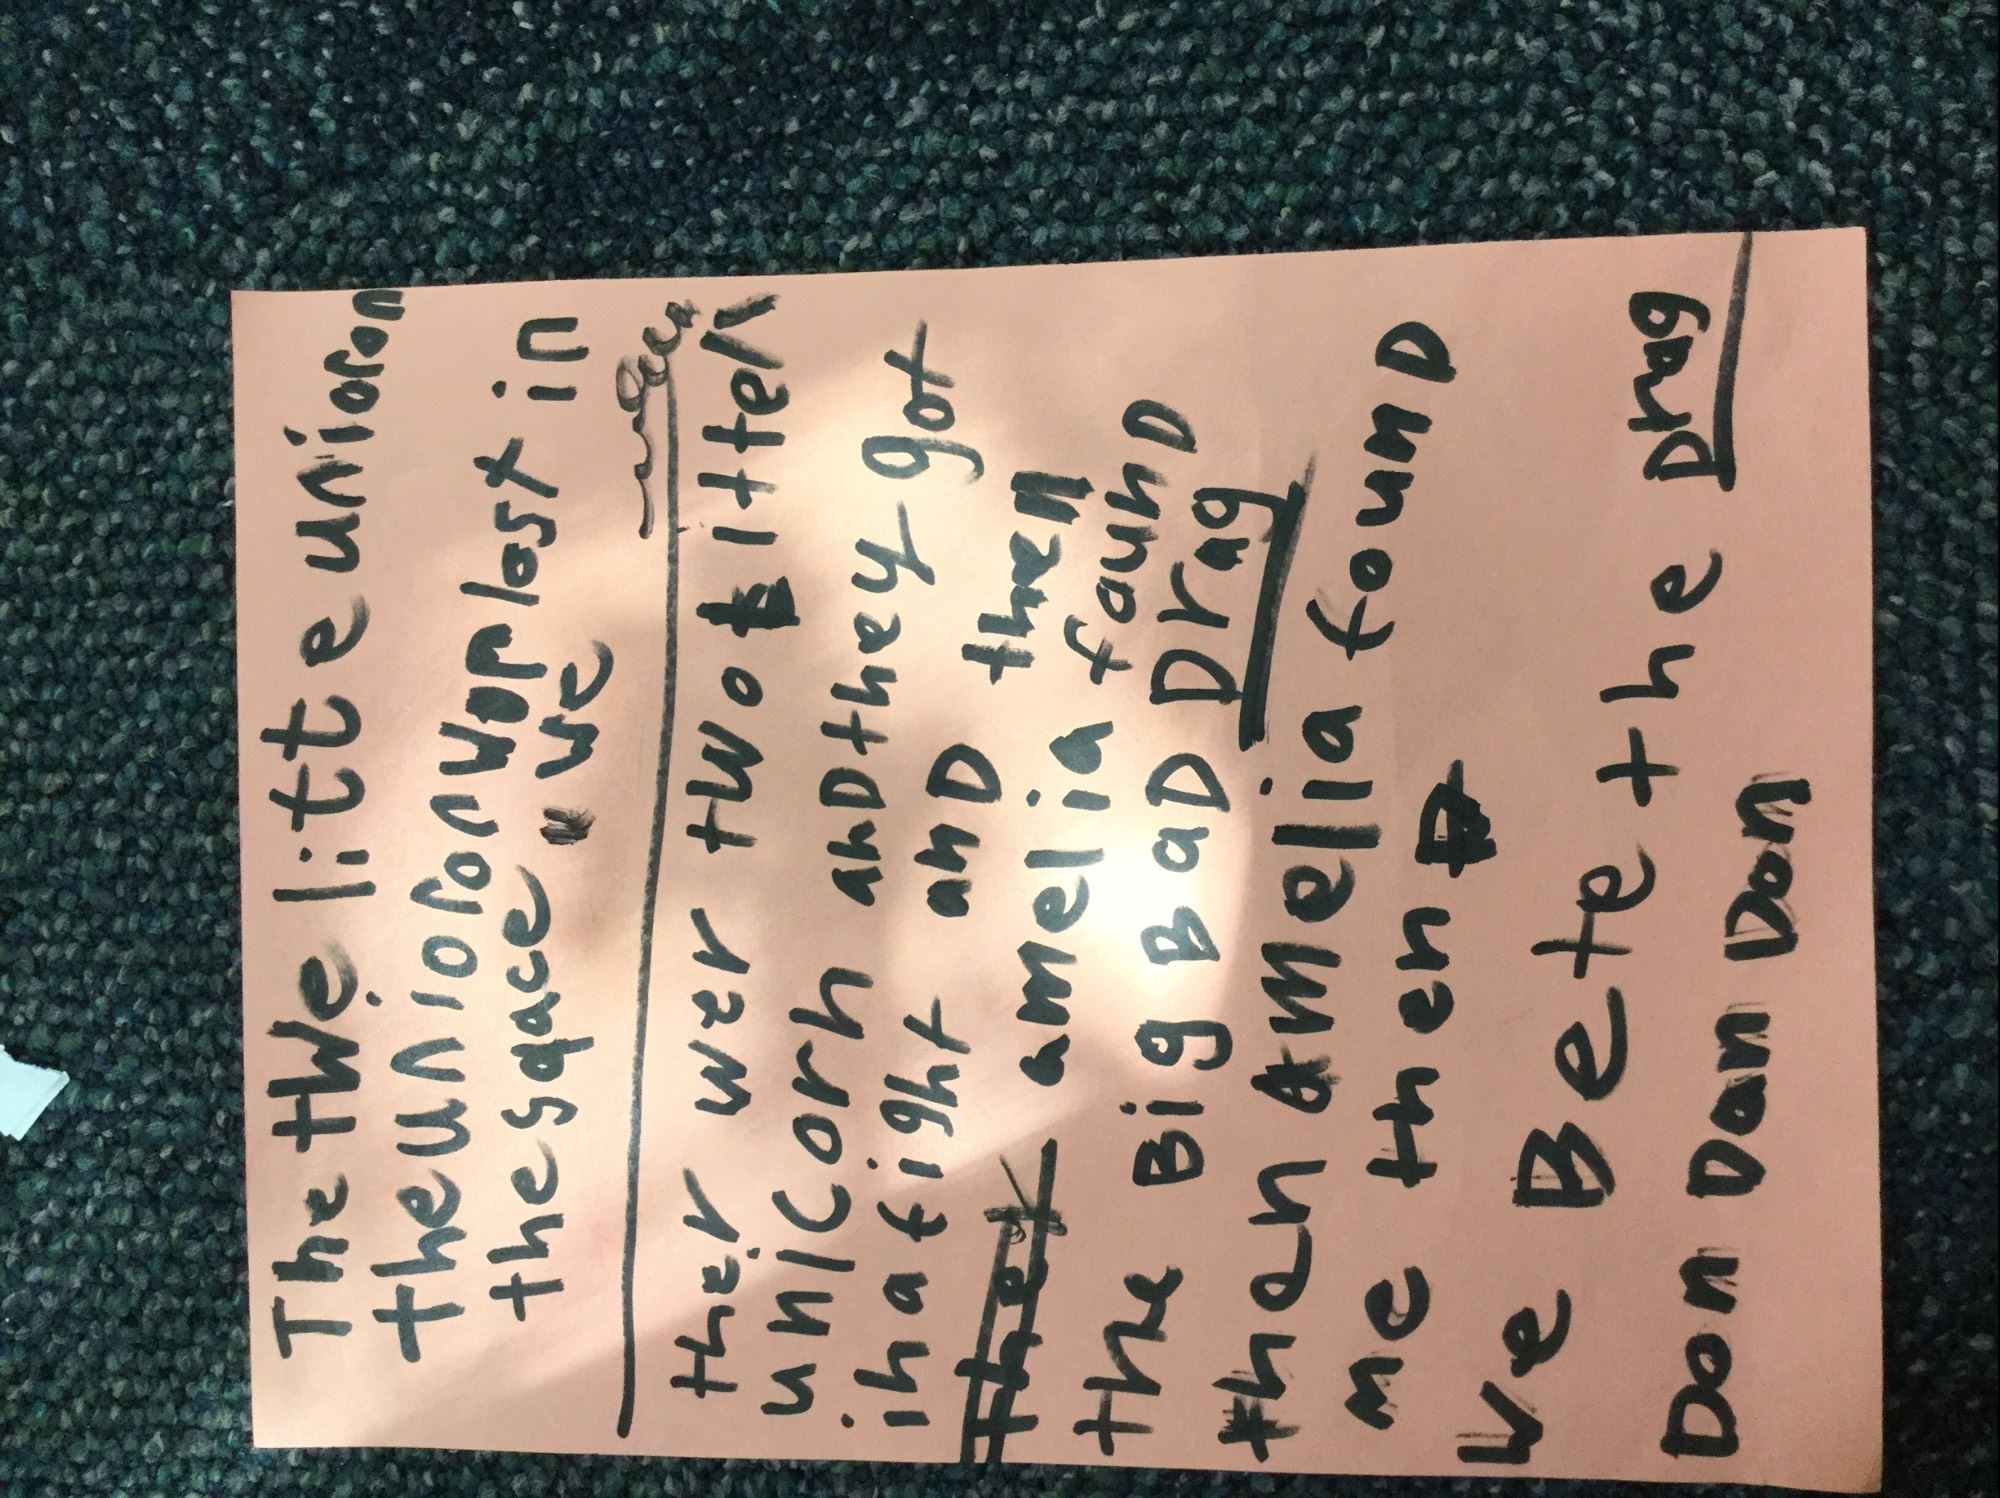 The twe litte unioron
the unioron wop last in
the sqace we
ther wer two littel
unicorn anD they got
in a fight anD then
the amelia faunD
the Big BaD Drag
then Amelia founD
me then
we Bete the Drag
Don Dan Don